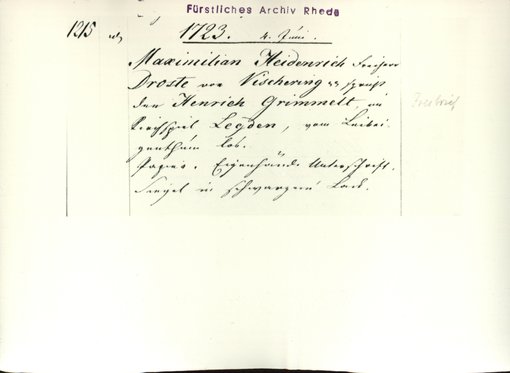 Fürstliches Archiv Rhede
1215
1723. 4. Juni.
Maximilian Heidenrich Freiherr
Droste von Vischering spricht
den Henrich Grimmelt, im
Kirchspiel Legden, vom Leibei-
genthum los.
Papier. Eigenhänd. Unterschrift.
Siegel in schwarzem Lack.
Freibrief